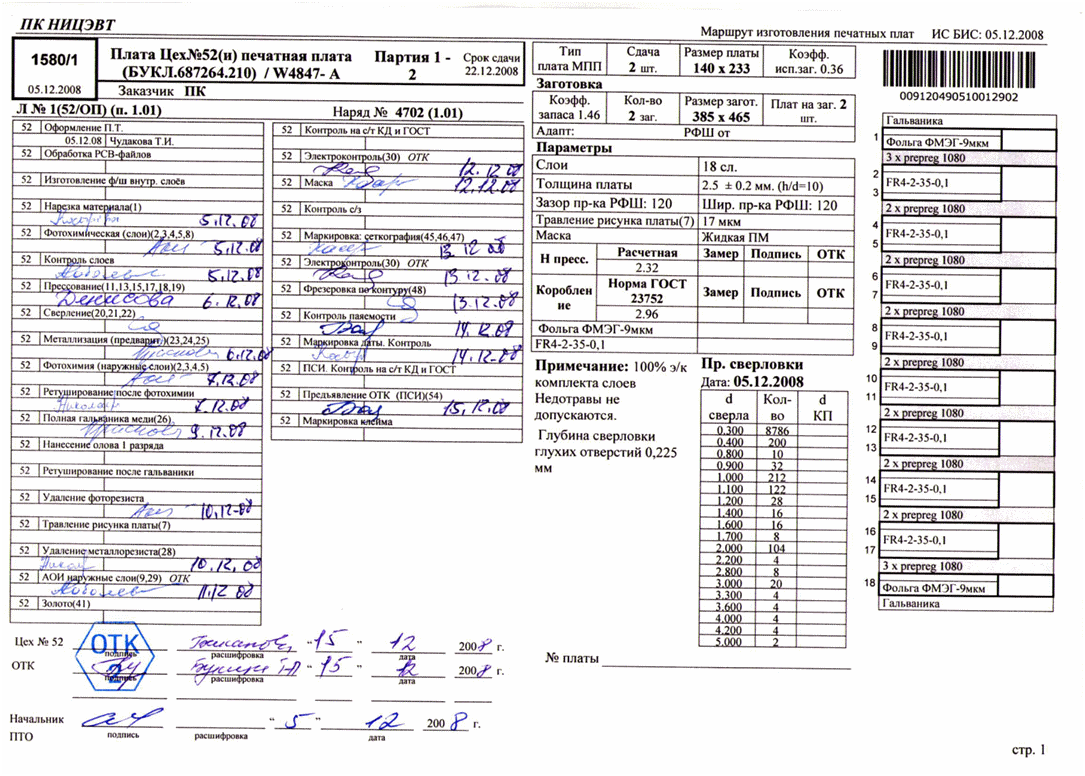 ПК НИЦЭВТ
Маршрут изготовления печатных плат ИС БИС: 05.12.2008
1580/1
05.12.2008
Плата Цех№52(н) печатная плата
(БУКЛ.687264.210) / W4847- А
Партия 1 -
2
Срок сдачи
22.12.2008
Заказчик ПК
Л № 1(52/ОП) (п. 1.01)
Наряд № 4702 (1.01)
52 Оформление П.Т.
05.12.08 Чудакова Т.И.
52 Обработка PCB-файлов
52 Изготовление ф/ш внутр. слоёв
52 Нарезка материала(1)
5.12.08
52 Фотохимическая (слои)(2,3,4,5,8)
5.12.08
52 Контроль слоев
5.12.08
52 Прессование(11,13,15,17,18,19)
Денисова 6.12.08
52 Сверление(20,21,22)
52 Металлизация (предварит.)(23,24,25)
6.12.08
52 Фотохимия (наружные слои)(2,3,4.5)
7.12.08
52 Ретуширование после фотохимии
7.12.08
52 Полная гальваника меди(26)
9.12.08
52 Нанесение олова 1 разряда
52 Ретуширование после гальваники
52 Удаление фоторезиста
10.12.08
52 Травление рисунка платы(7)
52 Удаление металлорезиста(28)
10.12.08
52 АОИ наружные слои(9,29) ОТК
11.12 08
52 Золото(41)
52 Контроль на с/т КД и ГОСТ
52 Электроконтроль(30) ОТК
12.12.08
52 Маска
12.12.08
52 Контроль с/з
52 Маркировка: сеткография(45,46,47)
13 12 08
52 Электроконтроль(30) ОТК
13.12.08
52 Фрезеровка по контуру(48)
13.12.08
52 Контроль паяемости
14.12.08
52 Маркировка даты. Контроль
14.12.08
52 ПСИ. Контроль на с/т КД и ГОСТ
52 Предъявление ОТК (ПСИ)(54)
15.12.08
52 Маркировка клейма
Тип
плата МПП
Сдача
2 шт.
Размер платы
140 x 233
Коэфф.
исп.заг. 0.36
Заготовка
Коэфф.
запаса 1.46
Кол-во
2 заг.
Размер загот.
385 x 465
Плат на заг. 2
шт.
Адапт: РФШ от
Параметры
Слои 18 сл.
Толщина платы 2.5 ± 0.2 мм. (h/d=10)
Зазор пр-ка РФШ: 120 Шир. пр-ка РФШ: 120
Травление рисунка платы(7) 17 мкм
Маска Жидкая ПМ
Н пресс. Расчетная Замер Подпись ОТК
2.32
Короблен
ие
Норма ГОСТ
23752
Замер Подпись ОТК
2.96
Фольга ФМЭГ-9мкм
FR4-2-35-0,1
Примечание: 100% э/к
комплекта слоев
Недотравы не
допускаются.
Глубина сверловки
глухих отверстий 0,225
мм
Пр. сверловки
Дата: 05.12.2008
d
сверла
Кол-
во
d
КП
0.300 8786
0.400 200
0.800 10
0.900 32
1.000 212
1.100 122
1.200 28
1.400 16
1.600 16
1.700 8
2.000 104
2.200 4
2.800 8
3.000 20
3.300 4
3.600 4
4.000 4
4.200 4
5.000 2
№ платы
009120490510012902
Гальваника
1 Фольга ФМЭГ-9мкм
3 x prepreg 1080
2
3
FR4-2-35-0,1
2 x prepreg 1080
4
5
FR4-2-35-0,1
2 x prepreg 1080
6
7
FR4-2-35-0,1
2 x prepreg 1080
8
9
FR4-2-35-0,1
2 x prepreg 1080
10
11
FR4-2-35-0,1
2 x prepreg 1080
12
13
FR4-2-35-0,1
2 x prepreg 1080
14
15
FR4-2-35-0,1
2 x prepreg 1080
16
17
FR4-2-35-0,1
3 x prepreg 1080
18 Фольга ФМЭГ-9мкм
Гальваника
Цех № 52 "15" 12 2008 г.
ОТК
подпись расшифровка дата
ОТК "15" 12 2008 г.
подпись расшифровка дата
Начальник
ПТО
"5" 12 2008 г.
подпись расшифровка дата
стр. 1